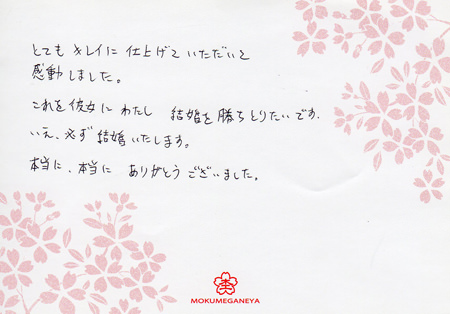 とても キレイに 仕上げて いただいて
感動しました。
これを 彼女に わたし 結婚を 勝ちとりたいです.
いえ、必ず 結婚いたします。
本当に、本当に ありがとう ございました。
MOKUMEGANEYA